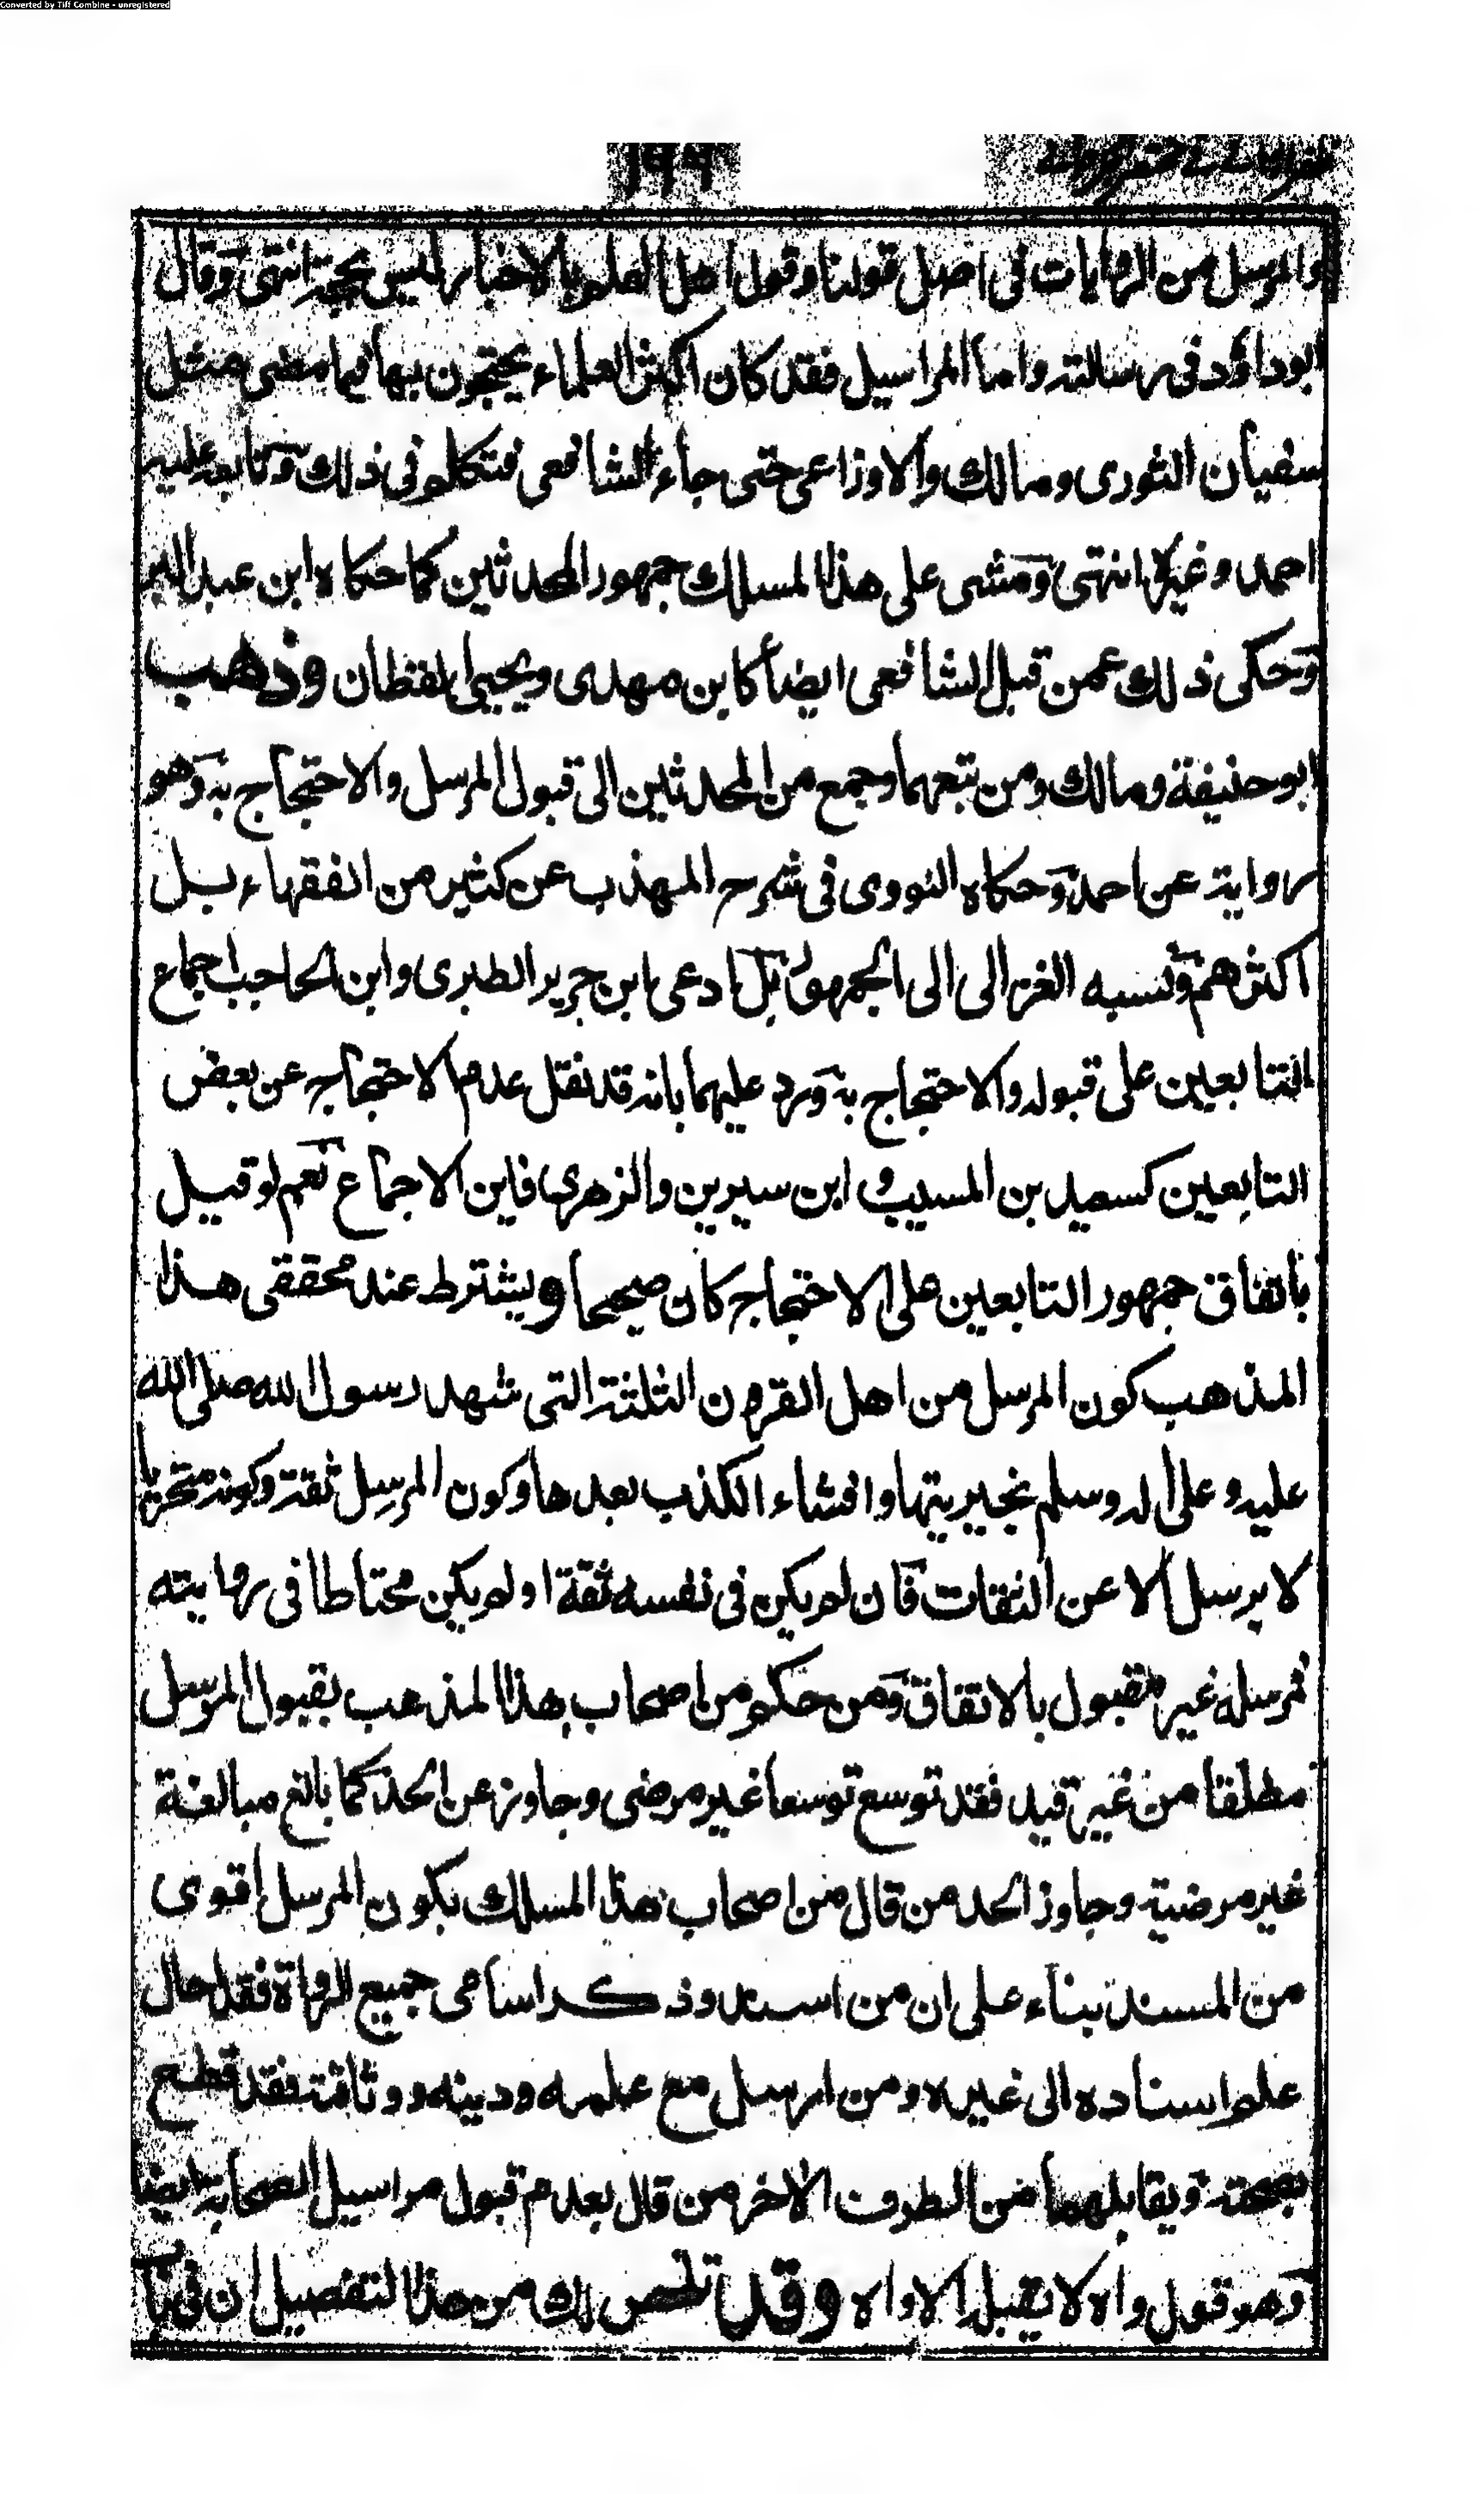 Converted by Tiff Combine - unregistered
١٩٩
والمرسل من الروايات فى اصل قولنا وقول اهل العلم بالاخبار ليس بحجة انتهى وقال
ابوداؤد فى رسالته واما المراسيل فقد كان اكثر العلماء يحتجون بها فيما مضى مثل
سفيان الثورى ومالك والاوزاعى حتى جاء الشافعى فتكلم فى ذلك وتابعه عليه
احمد وغيره انتهى ومشى على هذا المسلك جمهور المحدثين كما حكاه ابن عبد البر
وحكى ذلك عمن قبل الشافعى ايضا كابن مهدى ويحيى القطان وذهب
ابو حنيفة ومالك ومن تبعهما وجمع من المحدثين الى قبول المرسل والاحتجاج به وهو
رواية عن احمد وحكاه النووى فى شرح المهذب عن كثير من الفقهاء بل
اكثرهم ونسبه الغزالى الى الجمهور بل ادعى ابن جرير الطبرى وابن الحاجب اجماع
التابعين على قبوله والاحتجاج به ورد عليهما بانه قد نقل عدم الاحتجاج عن بعض
التابعين كسعيد بن المسيب و ابن سيرين والزهرى فاين الاجماع نعم لو قيل
باتفاق جمهور التابعين على الاحتجاج كان صحيحا ويشترط عند محققى هذا
المذهب كون المرسل من اهل القرون الثلثة التى شهد رسول الله صلى الله
عليه وعلى اله وسلم بخيريتها وافشاء الكذب بعدها وكون المرسل ثقة وكونه متحريا
لا يرسل الا عن الثقات فان لم يكن فى نفسه ثقة او لم يكن محتاطا فى روايته
فمرسله غير مقبول بالاتفاق ومن حكم من اصحاب هذا المذهب بقبول المرسل
مطلقا من غير قيد فقد توسع توسعا غير مرضى وجاوز عن الحد كما بالغ مبالغة
غير مرضية وجاوز الحد من قال من اصحاب هذا المسلك بكون المرسل اقوى
من المسند بناء على ان من اسند وذكر اسامى جميع الرواة فقد احال
علم اسناده الى غيره ومن ارسل مع علمه ودينه ووثاقته فقد قطع
بصحته ويقابلهما من الطرف الاخر من قال بعدم قبول مراسيل الصحابة ايضا
وهو قول واه لا يقبل الا واه وقد تلخص لك من هذا التفصيل ان فى